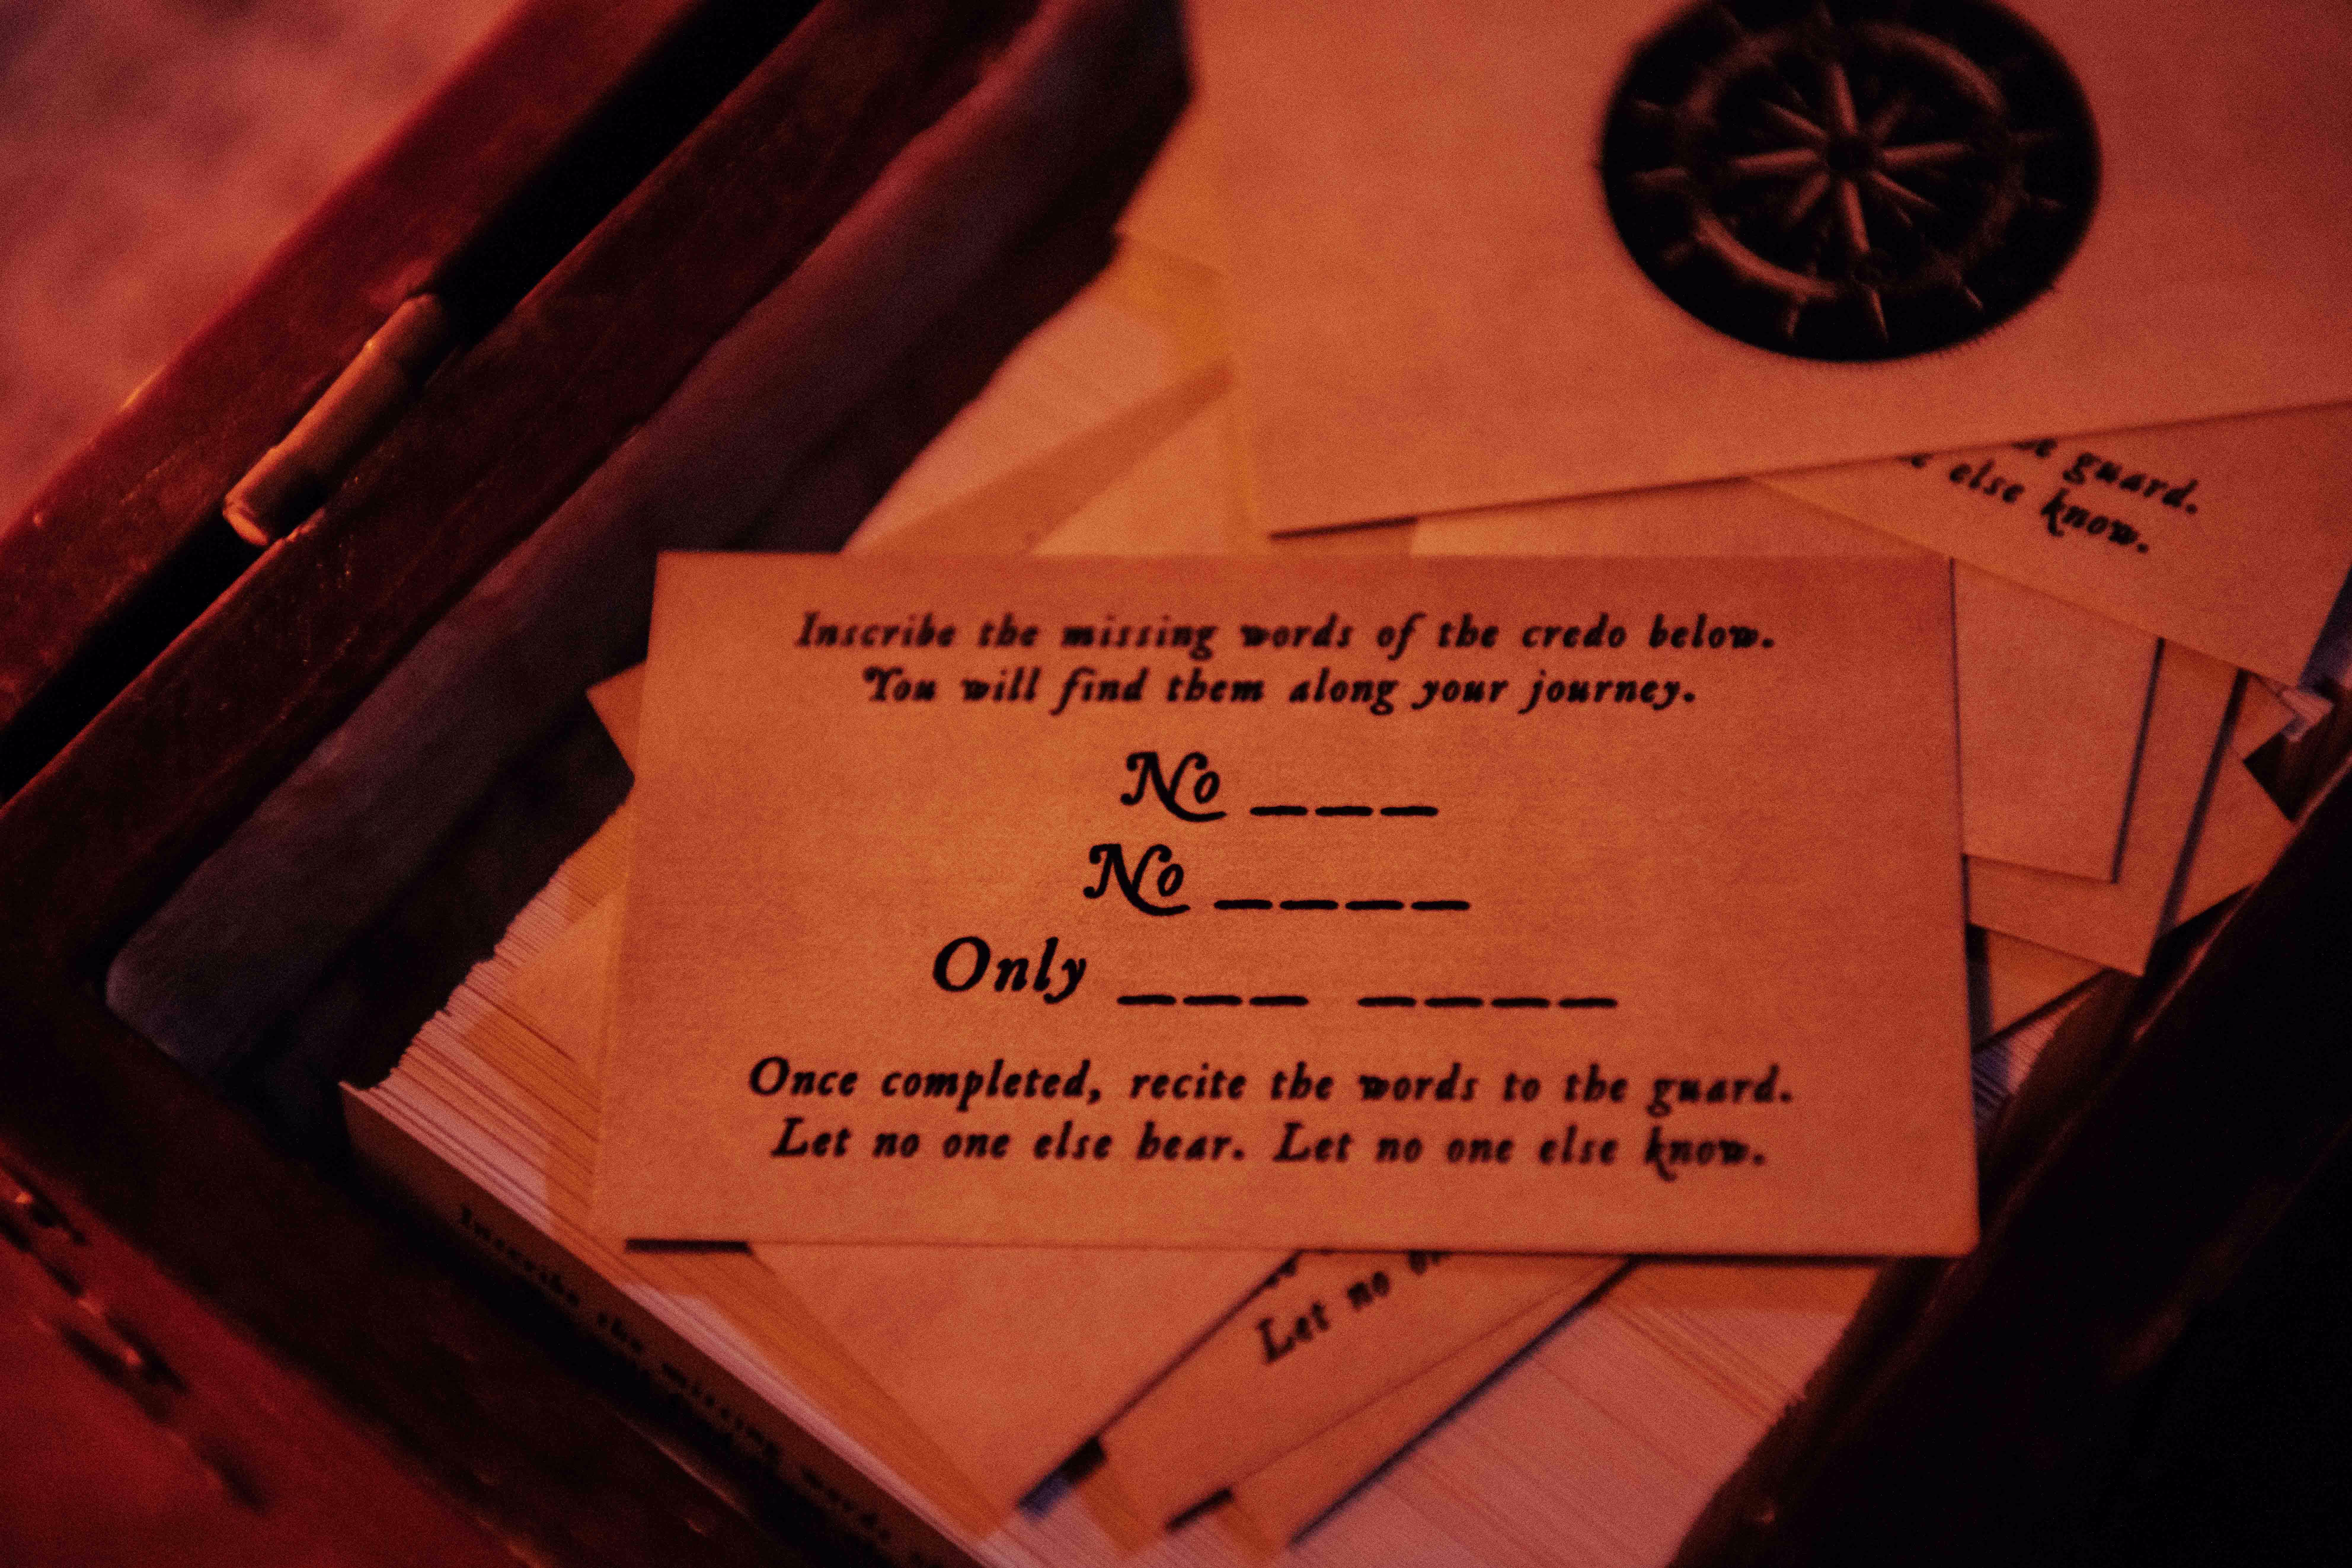 guard.
else know.
Inscribe the missing words of the credo below.
You will find them along your journey.
No _ _ _
No _ _ _ _
Only _ _ _ _ _ _ _
Once completed, recite the words to the guard.
Let no one else hear. Let no one else know.
Let no
Inscribe the missing words